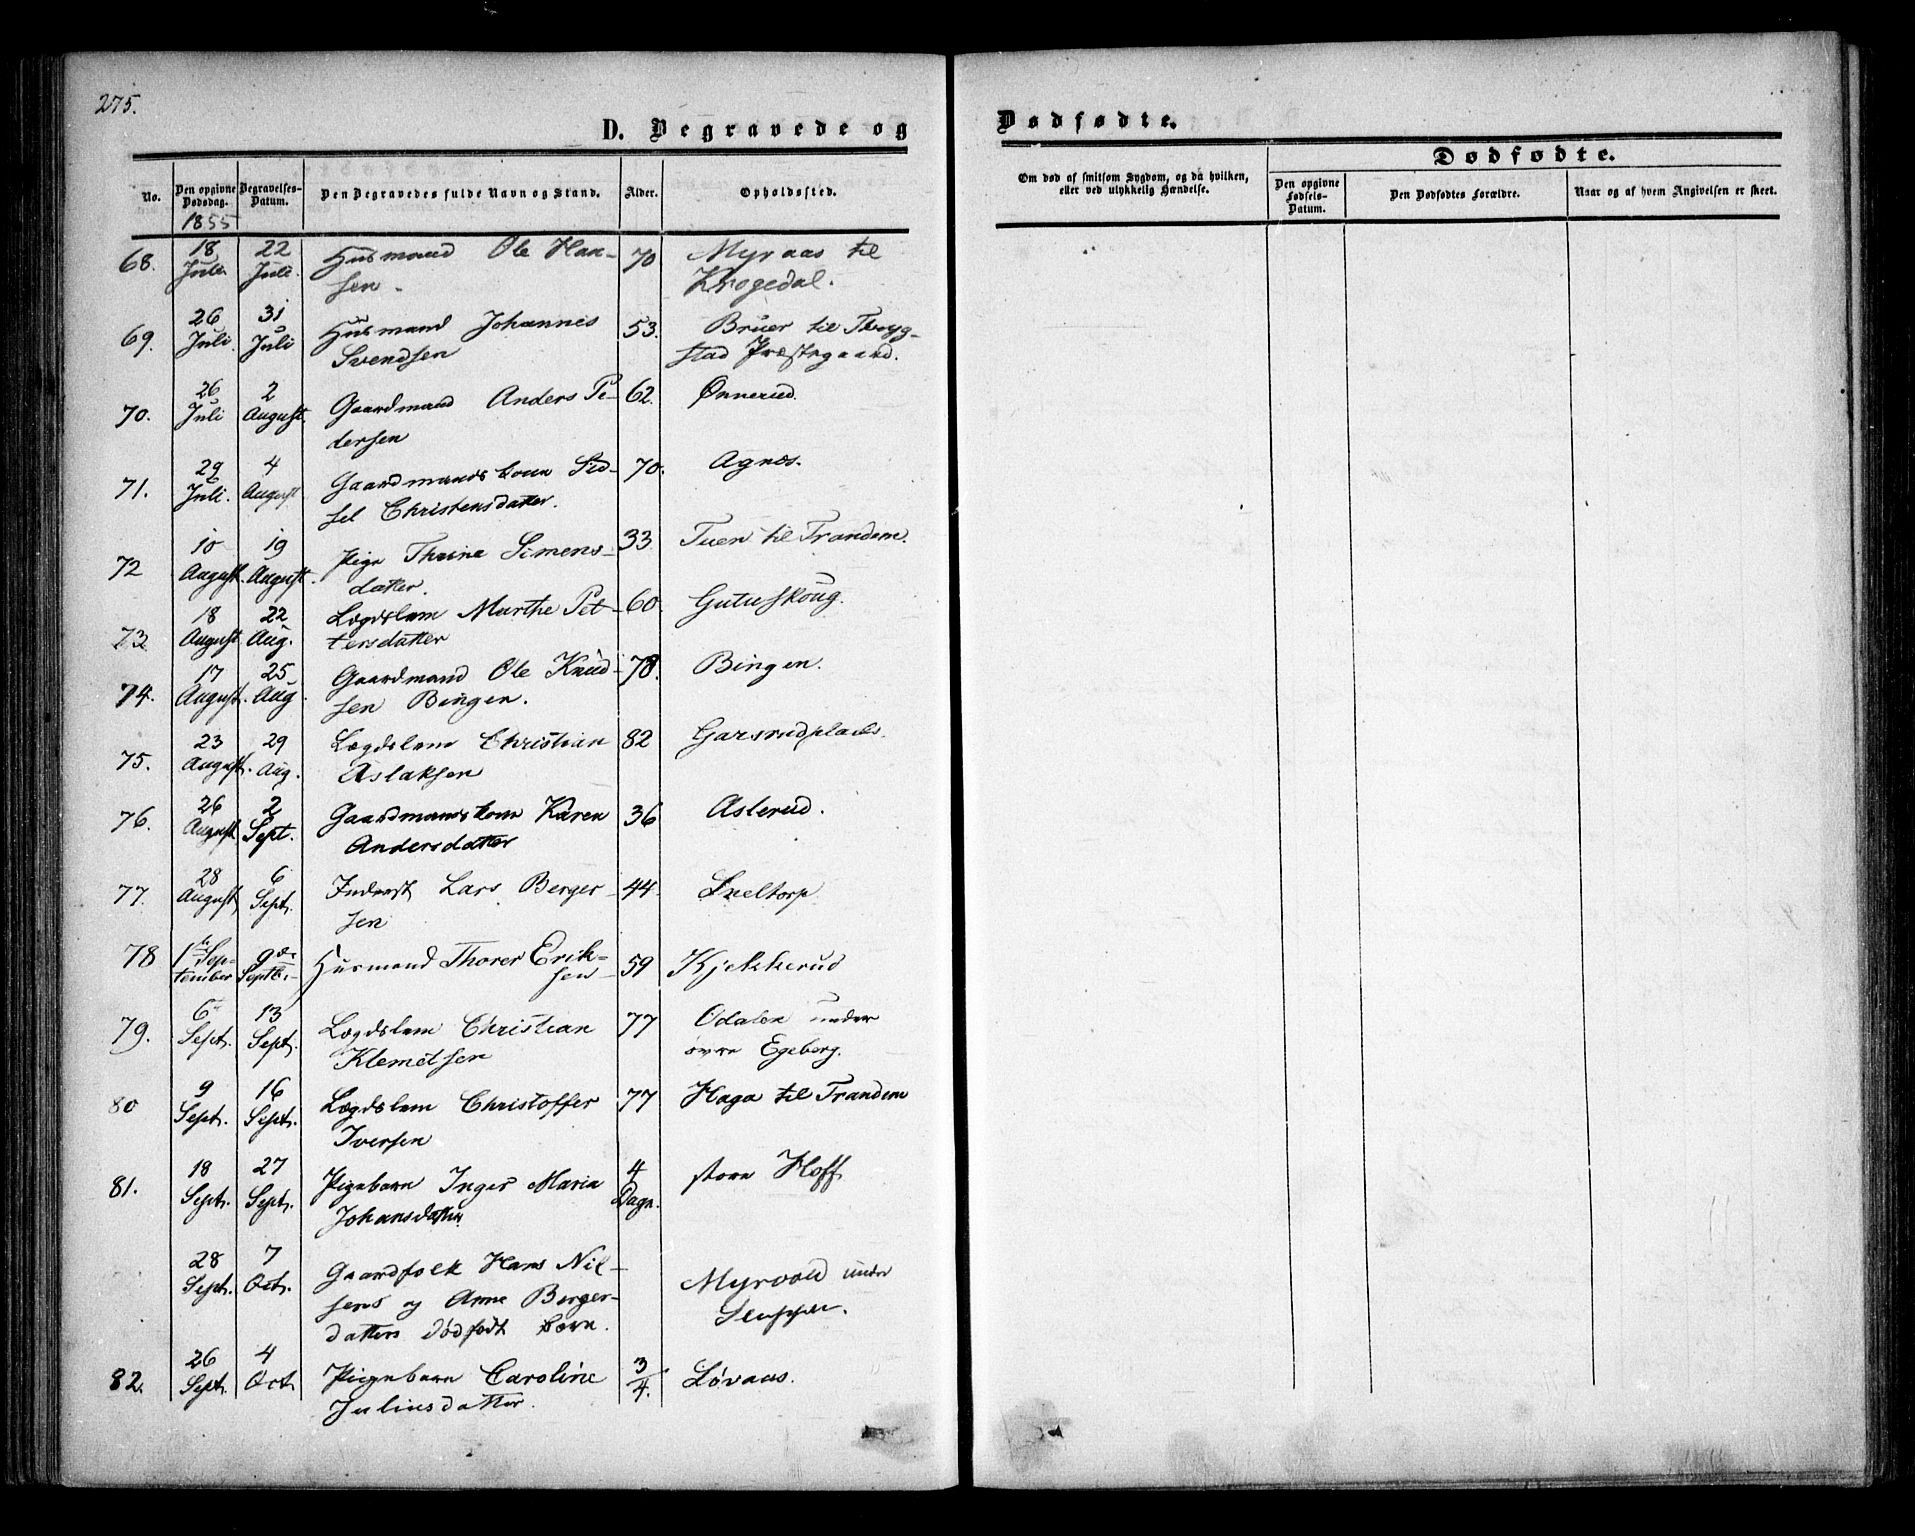 275.
D. Begravede og
Dødfødte.
No.
Den opgivne Dødsdag.
Begravelses-Datum.
Den Begravedes fulde Navn og Stand.
Alder.
Opholdssted.
Om død af smitsom Sygdom, og da hvilken,
eller ved ulykkelig Hændelse.
Dødfødte.
Den opgivne Fødsels-Datum.
Den Dødfødtes Forældre.
Naar og af hvem Angivelsen er skeet.
1855
68. 18 Juli 22 Juli. Husmand Ole Han- 70 Myraas til
sen. Krogedal.
69. 26 Juli. 31 Juli Husmand Johannes 53. Bruer til Thryg-
Svendsen stad Præstegaard.
70. 26 Juli 2 August. Gaardmand Anders Pe- 62. Ønnerud.
dersen
71. 29 Juli. 4 August Gaardmands kone Sid- 70. Agnæs.
sel Christensdatter.
72 10 August. 19 August. Pige Thrine Simens- 33 Tuen til Trandem.
datter.
73 18 August 22 Aug. Lægdslem Marthe Pet- 60. Gutuskoug.
tersdatter
74. 17 August. 25 Aug. Gaardmand Ole Knud- 78. Bingen.
sen Bingen.
75. 23 August. 29 Aug. Lægdslem Christian 82 Garsrudplads.
Aslaksen
76. 26 August 2 Sept. Gaardmands kone Karen 36 Asterud.
Andersdatter
77. 28 August 6 Sept. Inderst Lars Berger- 44. Sneltorp.
sen
78 1ste September 9de Septbr. Husmand Thorer Erik- 59 Kjekkerud
sen
79. 6 Sept. 13 Sept. Lægdslem Christian 77 Odalen under
Klemetsen øvre Egeberg.
80 9 Sept. 16 Sept. Lægdslem Christoffer 77 Haga til Trandem
Iversen
81. 18 Sept. 27 Sept. Pigebarn Inger Maria 4 Dage. store Hoff
Johansdatter
28 Sept. 7 Oct. Gaardfolk Hans Nil-
sens og Anne Berger- Myrvold under
datters dødfødt Barn.
82. 26 Sept. 4 Oct Pigebarn Caroline 3/4. Løvaas.
Juliusdatter.